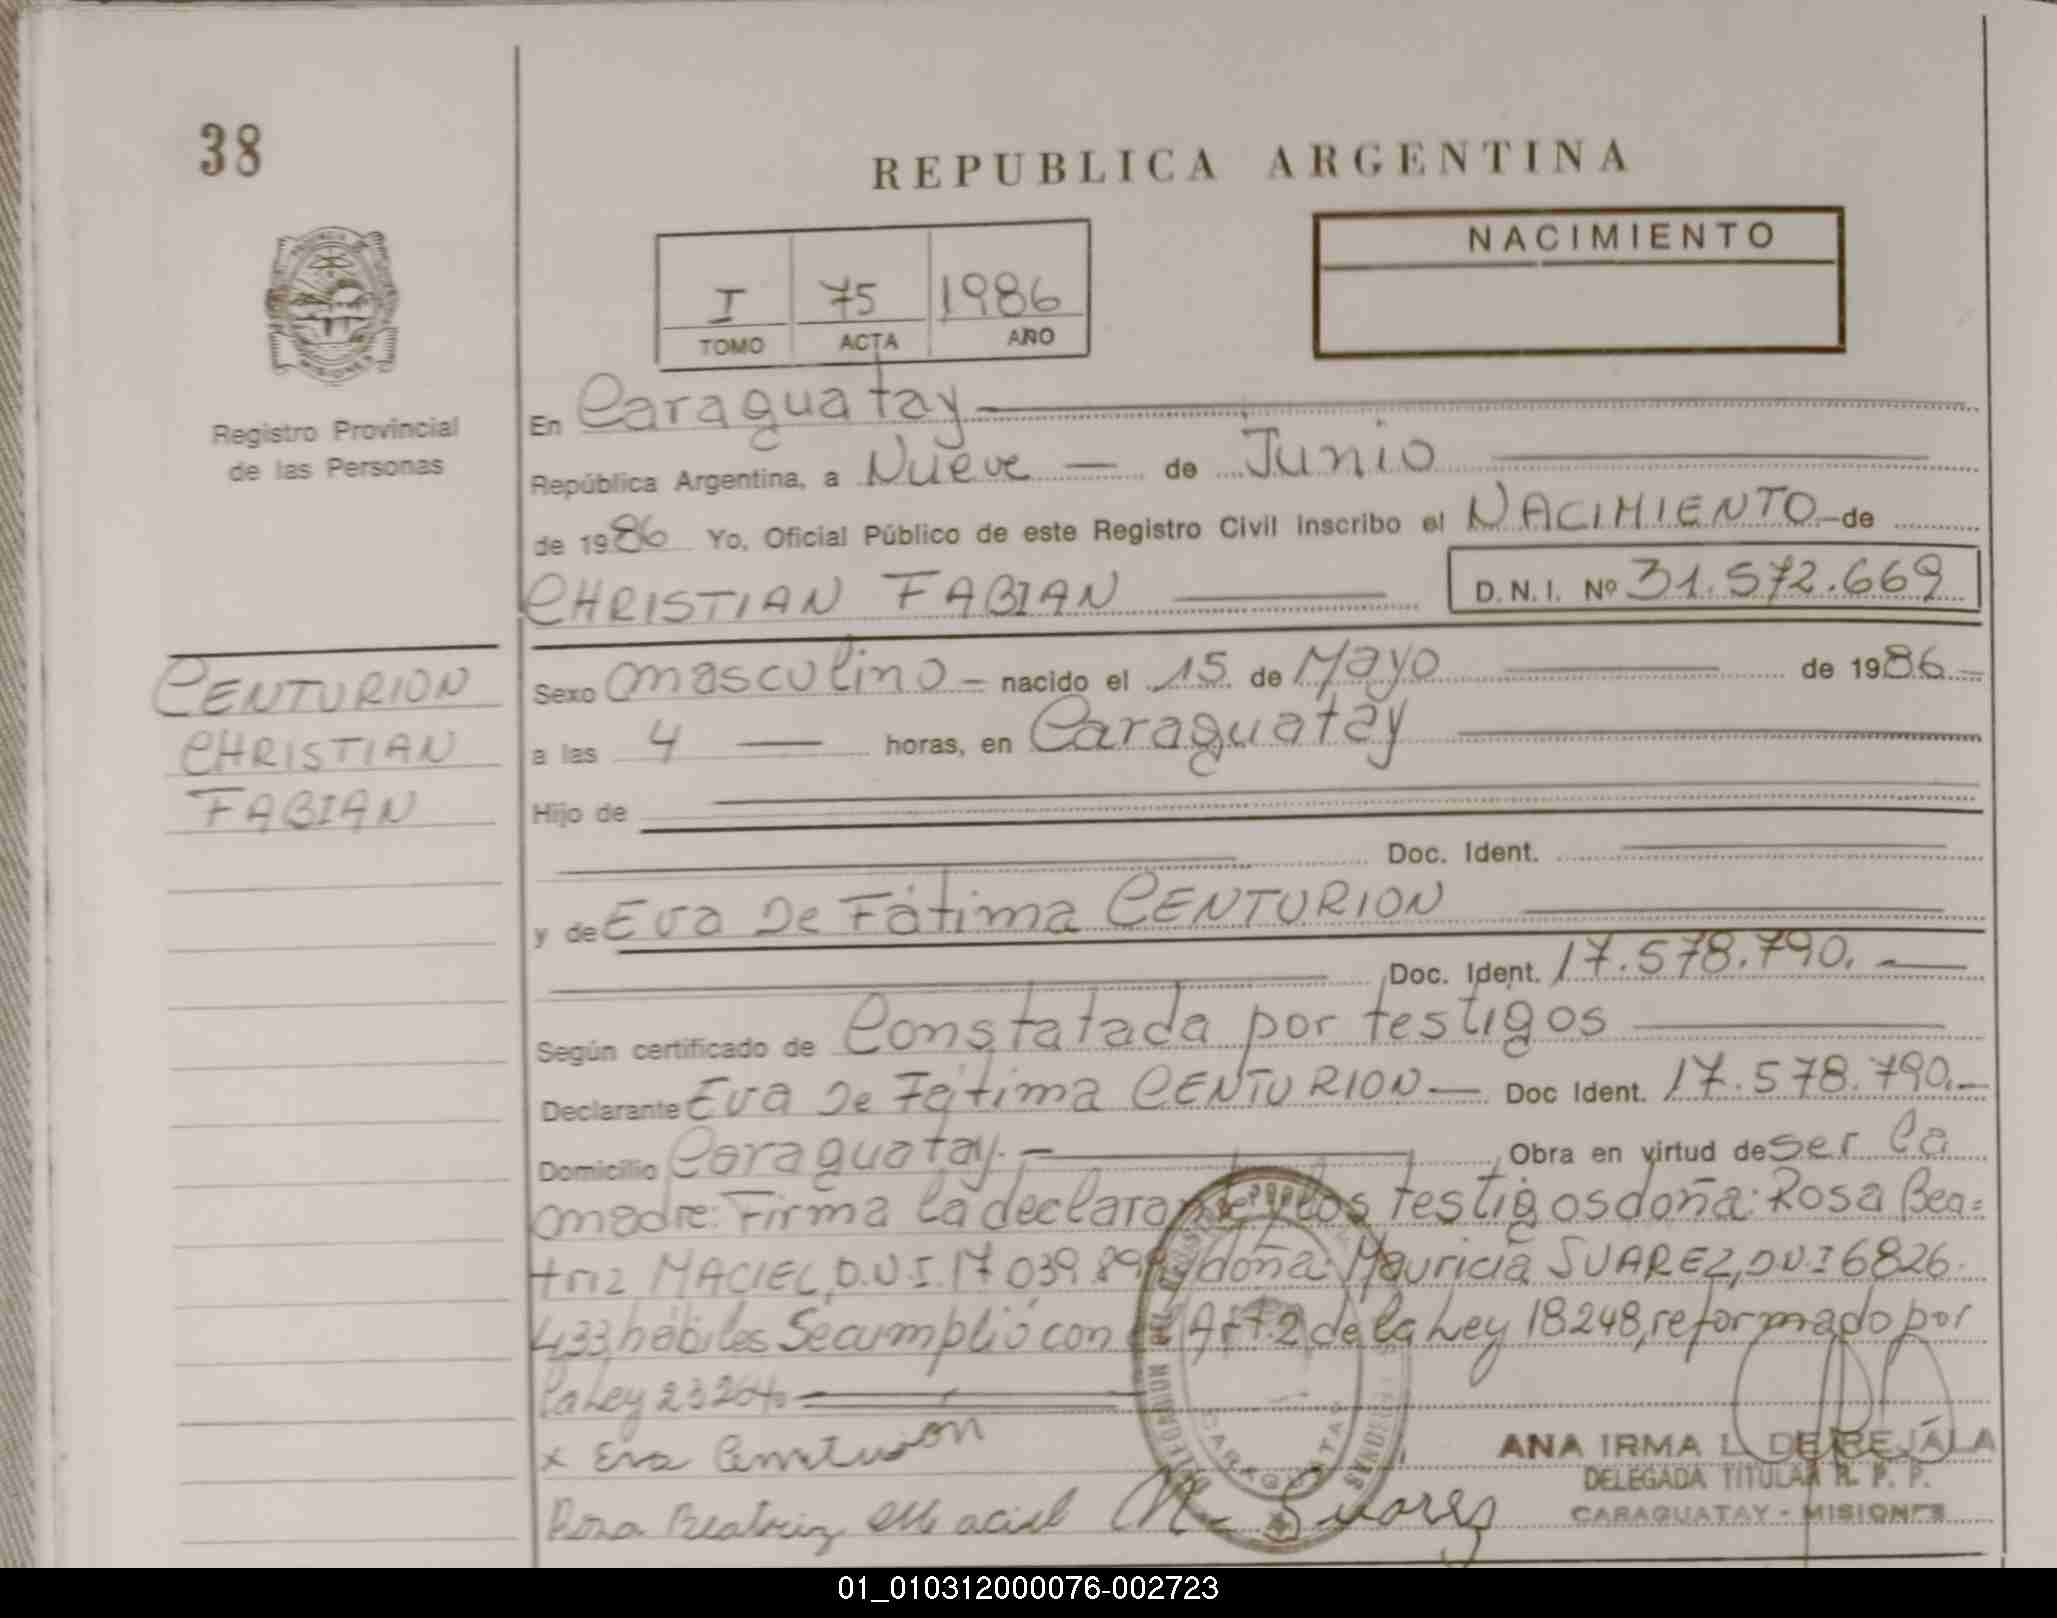 38
REPUBLICA ARGENTINA
NACIMIENTO
I 75 1986
TOMO ACTA AÑO
Registro Provincial
de las Personas
En Caraguatay
República Argentina, a Nueve de Junio
de 1986 Yo, Oficial Público de este Registro Civil inscribo el NACIMIENTO de
CHRISTIAN FABIAN D.N.I. Nº 31.572.669
CENTURION
CHRISTIAN
FABIAN
Sexo masculino nacido el 15 de Mayo de 1986
a las 4 horas, en Caraguatay
Hijo de
Doc. Ident.
y de Eva De Fátima CENTURION
Doc. Ident. 17.578.790.
Según certificado de Constatada por testigos
Declarante Eva De Fátima CENTURION Doc Ident. 17.578.790.
Domicilio Caraguatay. Obra en virtud de ser la
madre: Firma la declarante y los testigos doña: Rosa Bea=
triz MACIEL, D.N.I. 17 039 doña: Mauricia SUAREZ, D.N.I 6826
433 hábiles Se cumplió con Art. 2 de la Ley 18248, reformado por
la Ley 23264
x Eva Centurion
Rosa Beatriz Maciel M. Suarez
ANA IRMA L. DE BEJALA
DELEGADA TITULAR R. P. P.
CARAGUATAY - MISIONES
CARAGUATAY
01_010312000076-002723